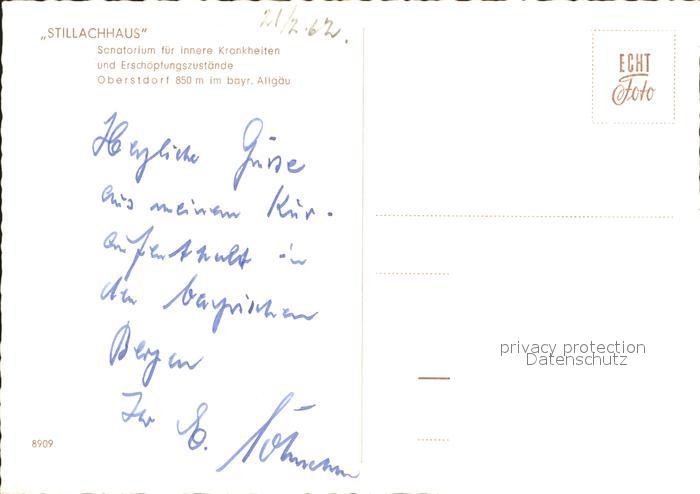 21/2.62.
„STILLACHHAUS"
Sanatorium für innere Krankheiten
und Erschöpfungszustände
Oberstdorf 850 m im bayr. Allgäu
ECHT
Foto
Herzliche Grüsse
aus meinem Kur-
aufenthalt in
den bayrischen
Bergen
Ihr E.
privacy protection
Datenschutz
8909